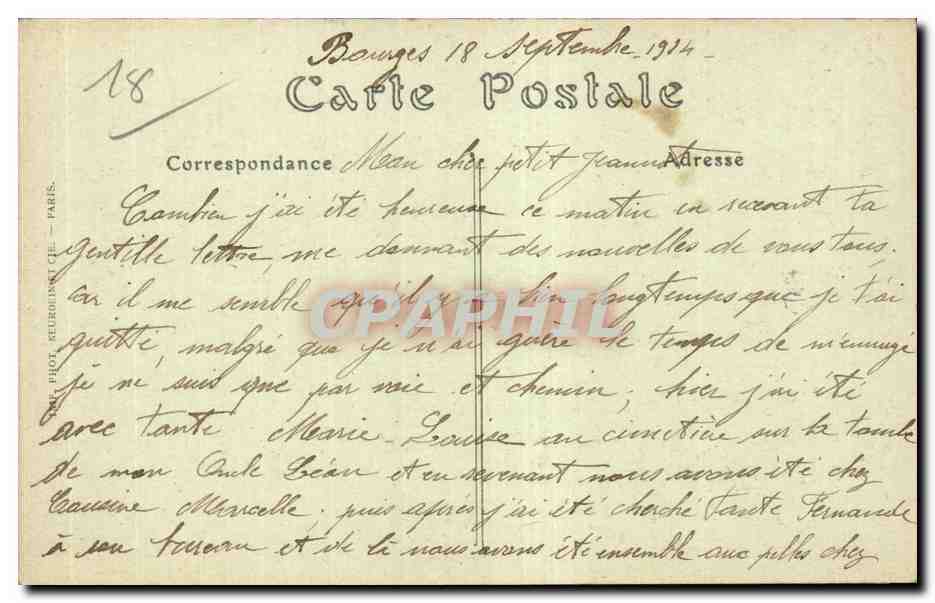 Bourges 18 Septembre 1914
18
Carte Postale
Correspondance
Adresse
Mon cher petit Jeannot
Combien j'ai été heureuse ce matin en recevant ta
gentille lettre, me donnant des nouvelles de vous tous.
car il me semble qu'il y a bien longtemps que je t'ai
quitté, malgré que je n'ai guère le temps de m'ennuyé
je ne suis que par voie et chemin, hier j'ai été
avec tante Marie-Louise au cimetière sur la tombe
de mon Oncle Léon et en revenant nous avons été chez
Cousine Marcelle, puis après j'ai été cherché Tante Fernande
à son bureau et de là nous avons été ensemble aux chez
IMP. PHOT. NEURDEIN ET CIE. — PARIS.
CPAPHIL